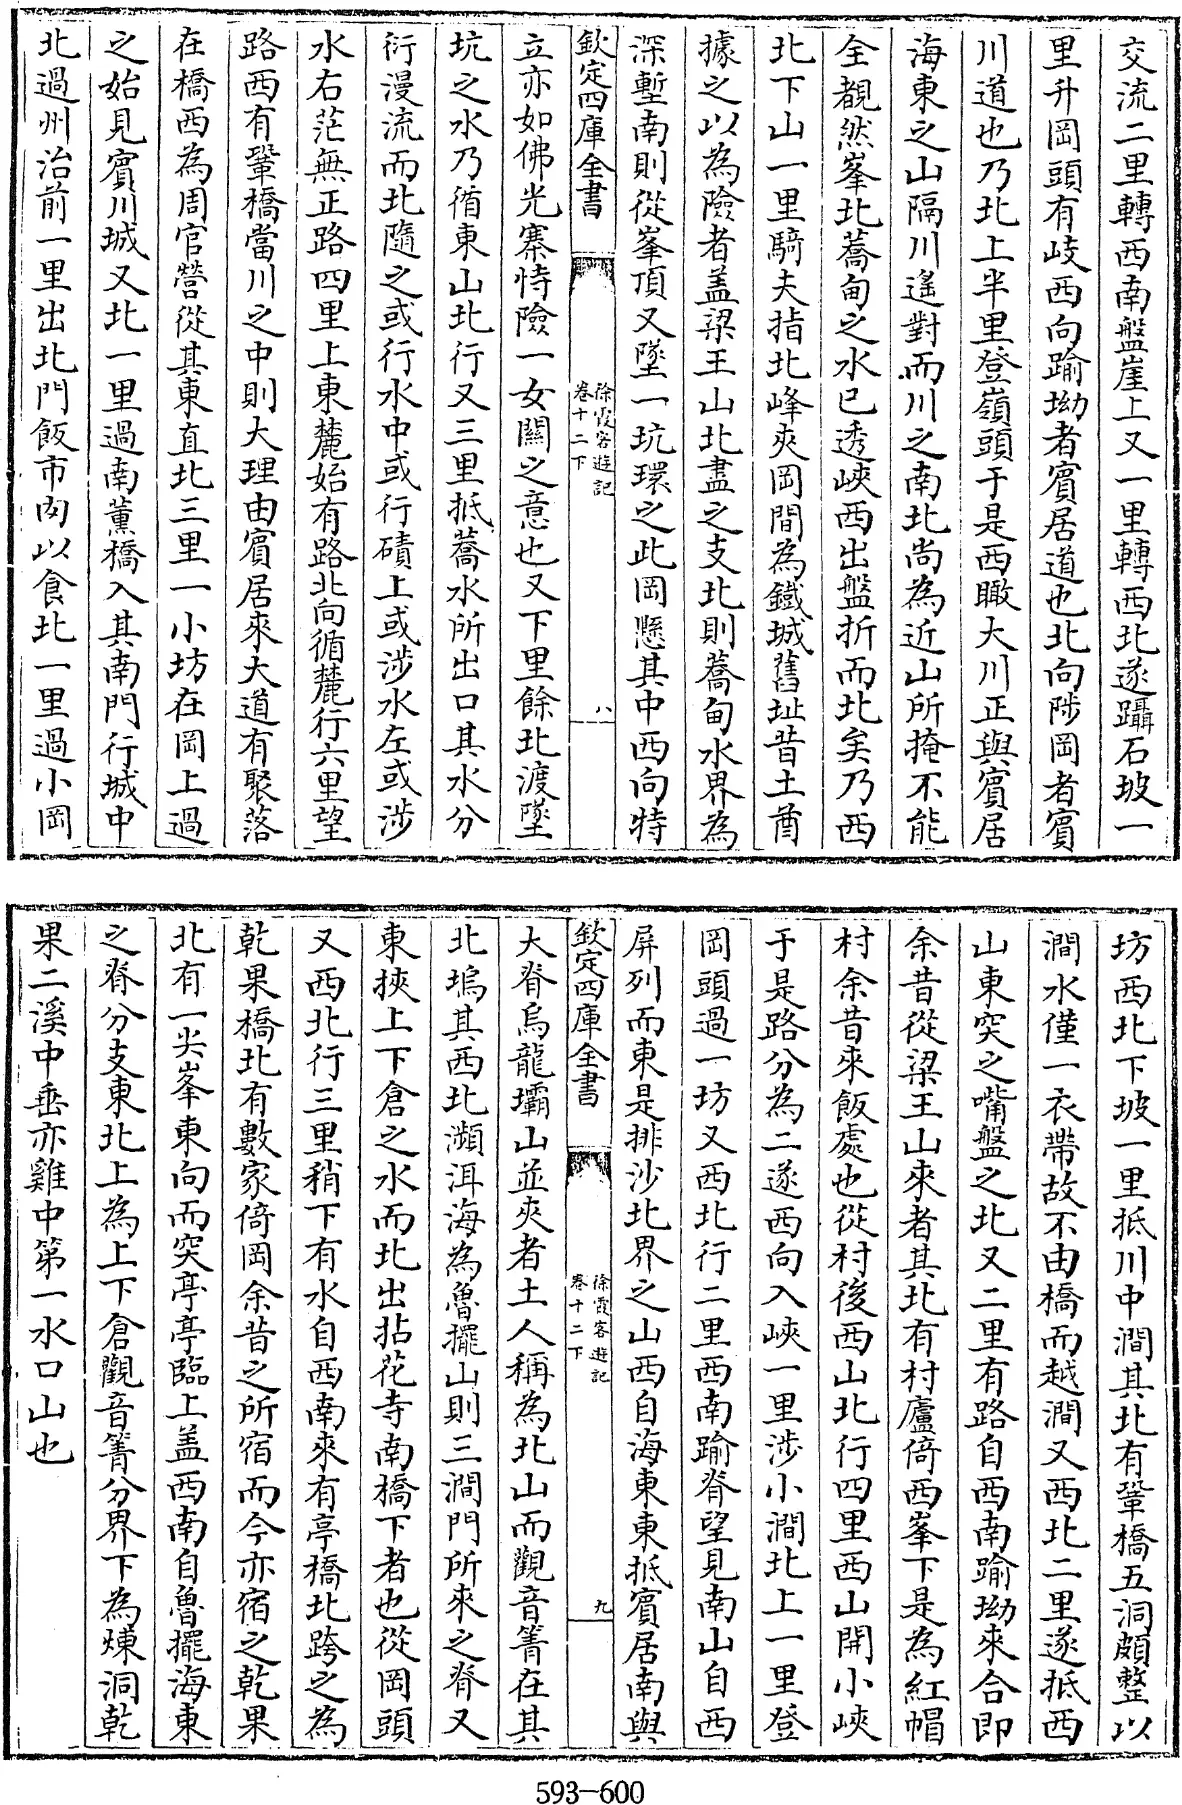 交流二里轉西南盤崖上又一里轉西北遂躡石坡一
里升岡頭有岐西向踰坳者賓居道也北向陟岡者賓
川道也乃北上半里登嶺頭于是西瞰大川正與賓居
海東之山隔川遙對而川之南北尚為近山所掩不能
全覩然峯北蕎甸之水已透峽西出盤折而北矣乃西
北下山一里騎夫指北峰夾岡間為鐵城舊址昔土酋
據之以為險者盖梁王山北盡之支北則蕎甸水界為
深塹南則從峯頂又墜一坑環之此岡懸其中西向特
欽定四庫全書
徐霞客遊記
卷十二下
八
立亦如佛光寨恃險一女關之意也又下里餘北渡墜
坑之水乃循東山北行又三里抵蕎水所出口其水分
衍漫流而北隨之或行水中或行磧上或涉水左或涉
水右茫無正路四里上東麓始有路北向循麓行六里望
路西有鞏橋當川之中則大理由賓居來大道有聚落
在橋西為周官營從其東直北三里一小坊在岡上過
之始見賓川城又北一里過南薰橋入其南門行城中
北過州治前一里出北門飯市肉以食北一里過小岡
坊西北下坡一里抵川中澗其北有鞏橋五洞頗整以
澗水僅一衣帶故不由橋而越澗又西北二里遂抵西
山東突之嘴盤之北又二里有路自西南踰坳來合即
余昔從梁王山來者其北有村廬倚西峯下是為紅帽
村余昔來飯處也從村後西山北行四里西山開小峽
于是路分為二遂西向入峽一里涉小澗北上一里登
岡頭過一坊又西北行二里西南踰脊望見南山自西
屏列而東是排沙北界之山西自海東東抵賓居南與
欽定四庫全書
徐霞客遊記
卷十二下
九
大脊烏龍壩山並夾者土人稱為北山而觀音箐在其
北塢其西北瀕洱海為魯擺山則三澗門所來之脊又
東挾上下倉之水而北出拈花寺南橋下者也從岡頭
又西北行三里稍下有水自西南來有亭橋北跨之為
乾果橋北有數家倚岡余昔之所宿而今亦宿之乾果
北有一尖峯東向而突亭亭臨上盖西南自魯擺海東
之脊分支東北上為上下倉觀音箐分界下為煉洞乾
果二溪中垂亦雞中第一水口山也
593-600